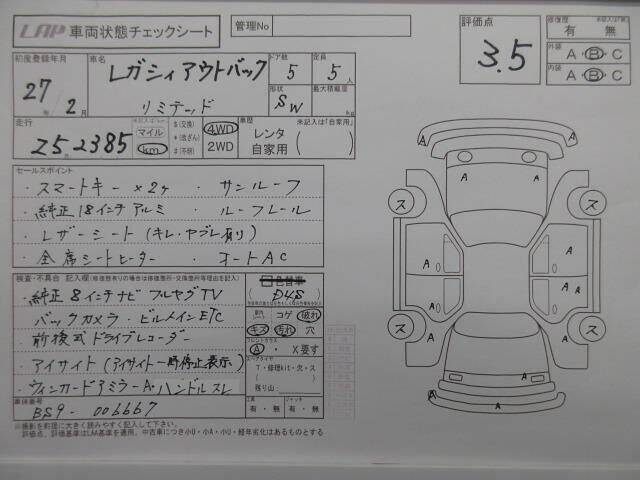 LAP 車両状態チェックシート
管理No
評価点
3.5
修復歴 未記入は「無」
有 無
外装 A・B・C
内装 A・B・C
初度登録年月
27年 2月
車名
レガシィアウトバック
リミテッド
ドア数
5
定員
5人
形状
SW
最大積載量
kg
走行
252385
マイル
km
$(交換)
*(改ざん)
#(不明)
4WD
2WD
車歴 未記入は「自家用」
レンタ
自家用
セールスポイント
・スマートキー×2ヶ ・サンルーフ
・純正18インチアルミ ・ルーフレール
・レザーシート(キレ・ヤブレ有り)
・全席シートヒーター ・オートAC
検査・不具合 記入欄(修復歴有りの場合は修復箇所・交換箇所等理由を記入)
・純正8インチナビ フルセグTV
バックカメラ・ビルトインETC
前後式ドライブレコーダー
・アイサイト(アイサイト一時停止表示)
・ウィンカードアミラーA・ハンドルスレ
色替車
(D4S)
コゲ
破れ
キズ
汚れ
穴
フロントガラス
A・ X要す
スペアタイヤ
T・修理kit・欠・ス
残り山
工具
有・無
ジャッキ
有・無
車体番号
BS9-006667
※撮影を前提に大きく読みやすく記入してください。
評価点、評価基準はLAA基準を適用、中古車につき小U・小A・小U・経年劣化はあるものとする
A
A
A
A
A
ス
ス
A
A
A
A
A
A
A
ス
ス
A
A
A
A